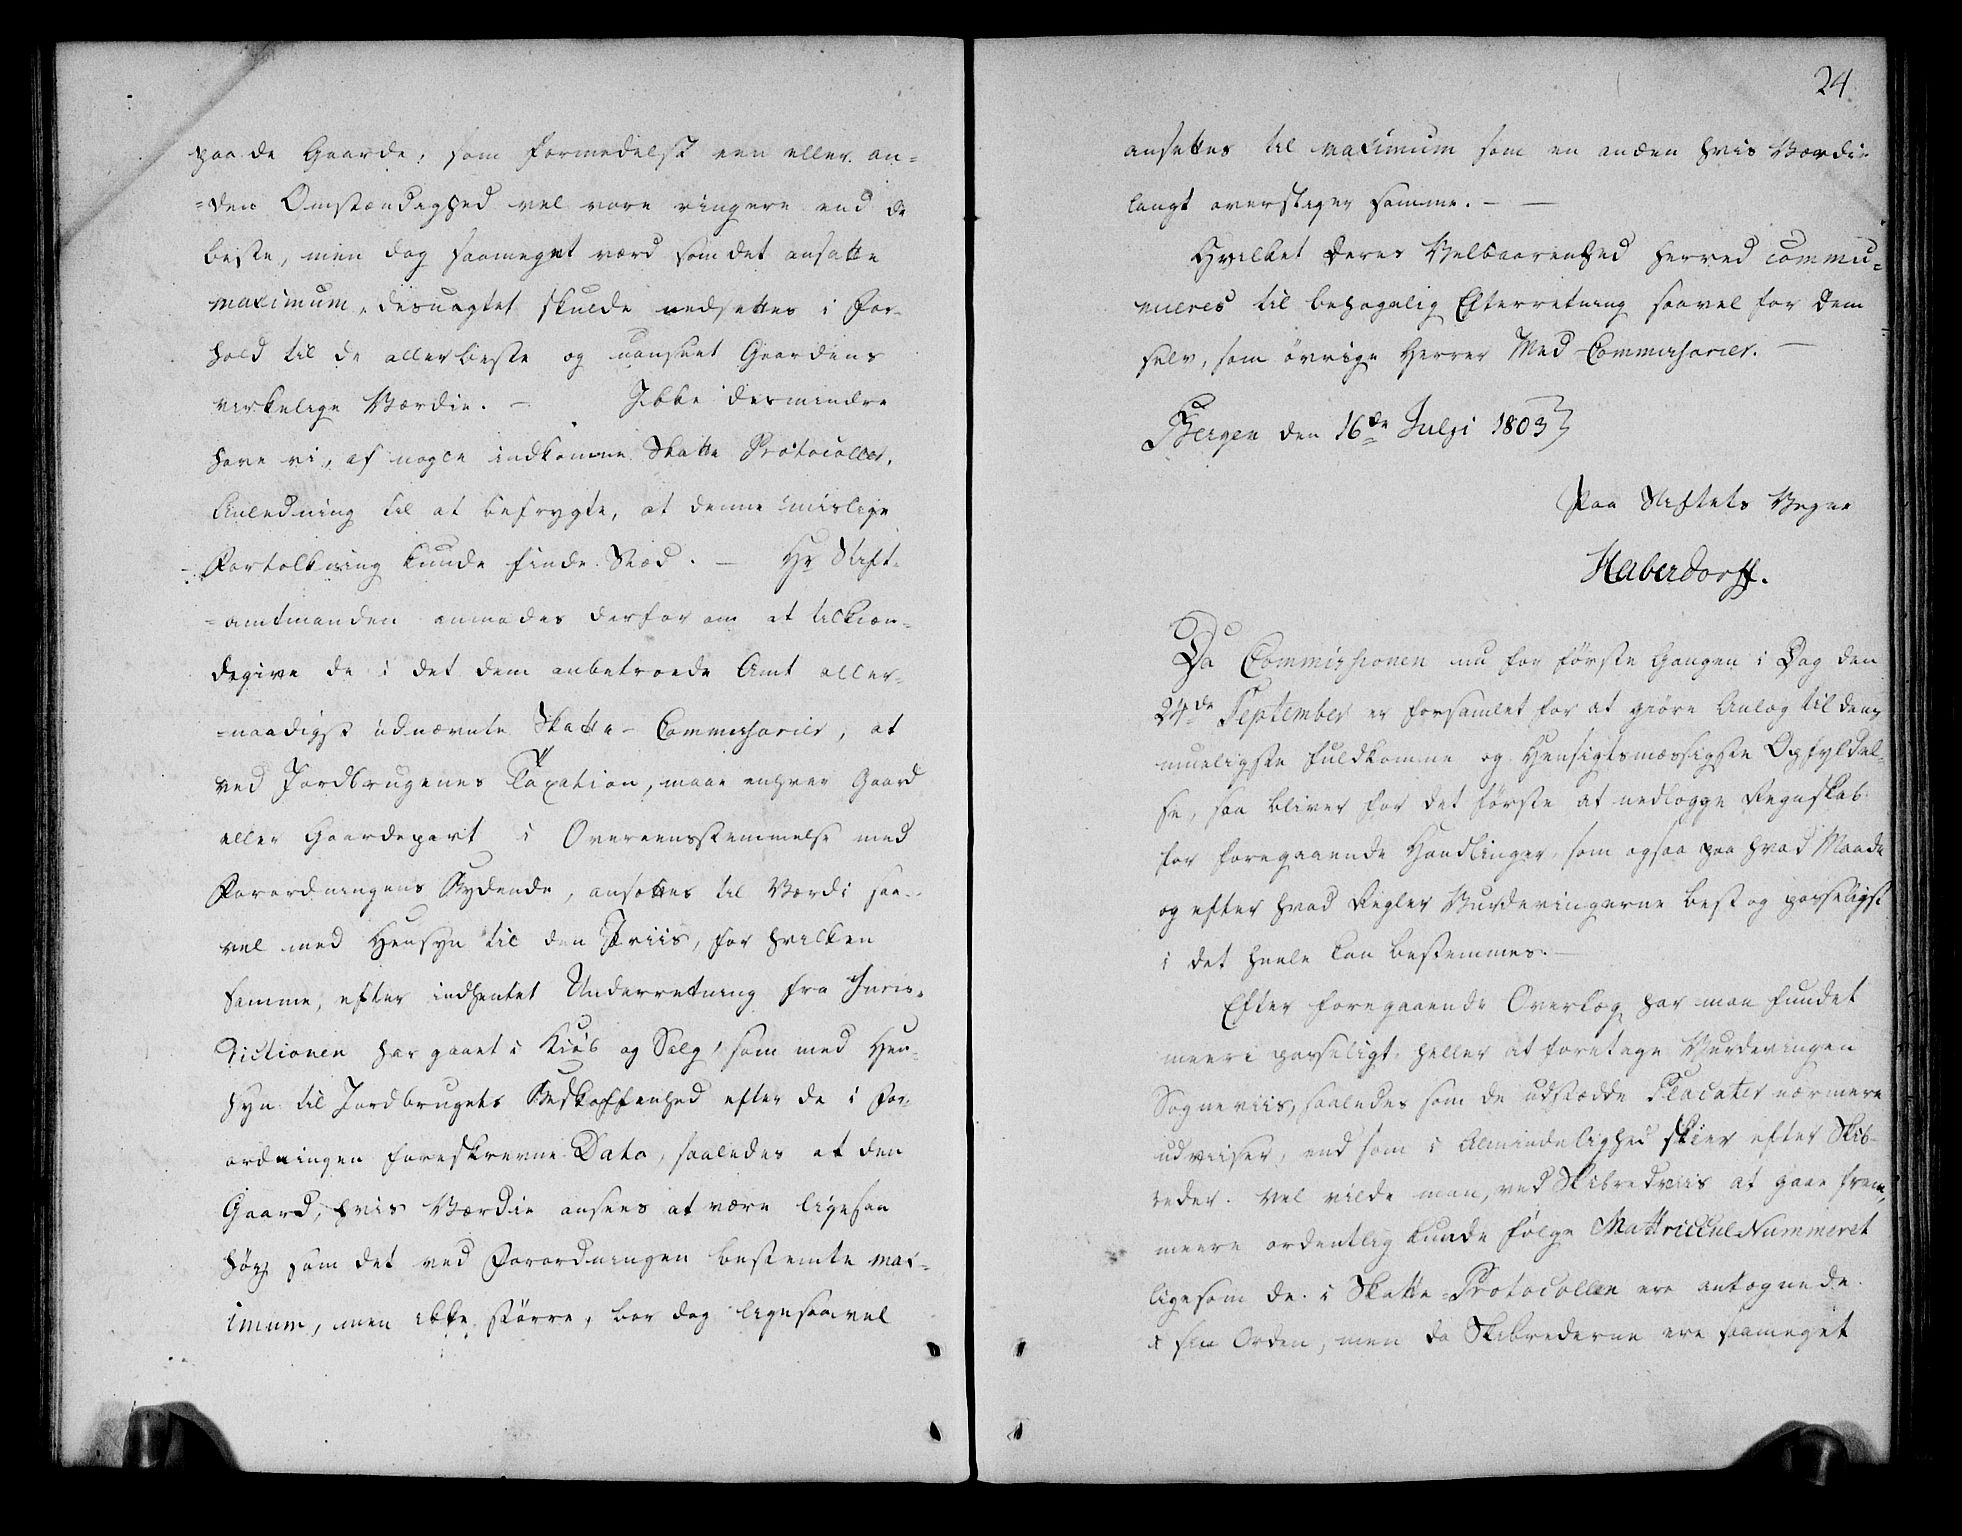 paa de Gaarde, som formedelst een eller an-
=den Omstændighed vel vare ringere end de
beste, men dog saameget værd som det ansatte
maximum, desuagtet skulde nedsettes i For-
hold til de allerbeste og uanseet Gaardens
virkelige Værdie. — Ikke desmindre
have vi, af nogle indkomne Skatte Protocoller,
Anledning til at befrygte, at denne mislige
Fortolkning kunde finde Sted. — Hr Stift-
=amtmanden anmodes derfor om at tilkien-
degive de i det dem anbetroede Amt aller-
=naadigst udnævnte Skatte-Commissarier, at
ved Jordbrugenes Taxation, maae enhver Gaard
eller Gaardepart i Overeensstemmelse med
Forordningens Bydende, ansættes til Værdi saa-
vel med Hensyn til den Priis, for hvilken
samme, efter indhentet Underretning fra Juris-
dictionen har gaaet i Kiøb og Salg, som med Hen-
syn til Jordbrugets Beskaffenhed efter de i For-
ordningen foreskrevne Data, saaledes at den
Gaard, hvis Værdie ansees at være ligesaa
høy som det ved Forordningen bestemte max-
imum, men ikke større, bør dog ligesaavel
24
ansettes til maximum som en anden hvis Værdie
langt overstiger samme. — —
Hvilket Deres Velbaarenhed herved commu-
niceres til behagelig Efterretning saavel for Dem
selv, som övrige Herrer Med-Commissarier. —
Bergen den 16de Julii 1803
Paa Stiftets Vegne
Haberdorff.
Da Commissionen nu for første Gangen i Dag den
24de September er forsamlet for at giøre Anlæg til dens
mueligste fuldkomne og Hensigtsmæssigste Opfyldel-
se, saa bliver for det første at nedlægge Regnskab
for foregaaende Handlinger, som ogsaa paa hvad Maade
og efter hvad Regler Vurderingerne best og passeligst
i det heele kan bestemmes. —
Efter foregaaende Overlæg har man fundet
meere passeligt, heller at foretage Vurderingen
Sogneviis, saaledes som de udstædde Placater nærmere
udviiser, end som i Almindelighed skier efter Skib-
reder. Vel vilde man, ved Skibredviis at gaae frem,
meere ordentlig kunde følge Mattricul Nummeret
ligesom de i Skatte-Protocollen ere antegnede
i sin Orden, men da Skibrederne ere saameget